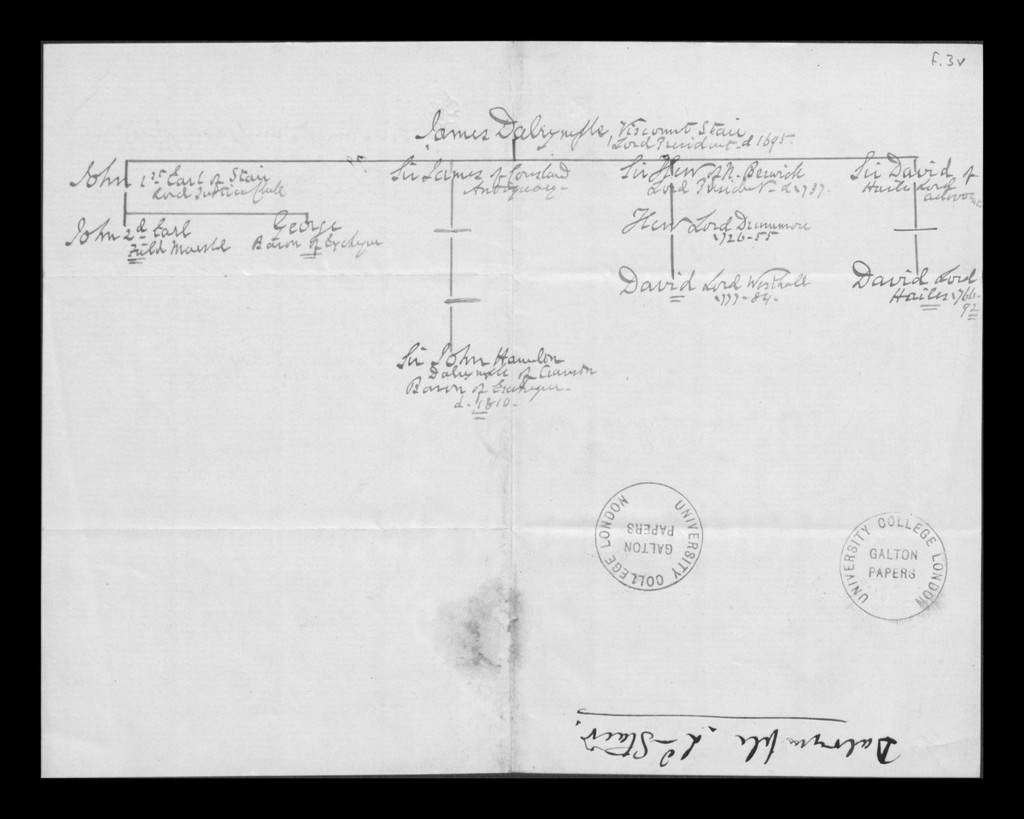 f. 3v
James Dalrymple, Viscount Stair
Lord President d 1695.
John 1st Earl of Stair
Lord Justice Clerk
Sir James of
Antiquary -
Sir Hew of N. Berwick
Lord President d 1737.
Sir David of
Hailes Lord
John 2d Earl
Field Marshl
George
Baron of Exchequer
Hew Lord Drummore
1726-55
David Lord Westhall
1777-84.
David Lord
Hailes 1766-
92
Sir John Hamilton
Dalrymple of
Baron of Exchequer -
d. 1810.
UNIVERSITY COLLEGE LONDON
GALTON
PAPERS
UNIVERSITY COLLEGE LONDON
GALTON
PAPERS
Dalrymple, Ld Stair.